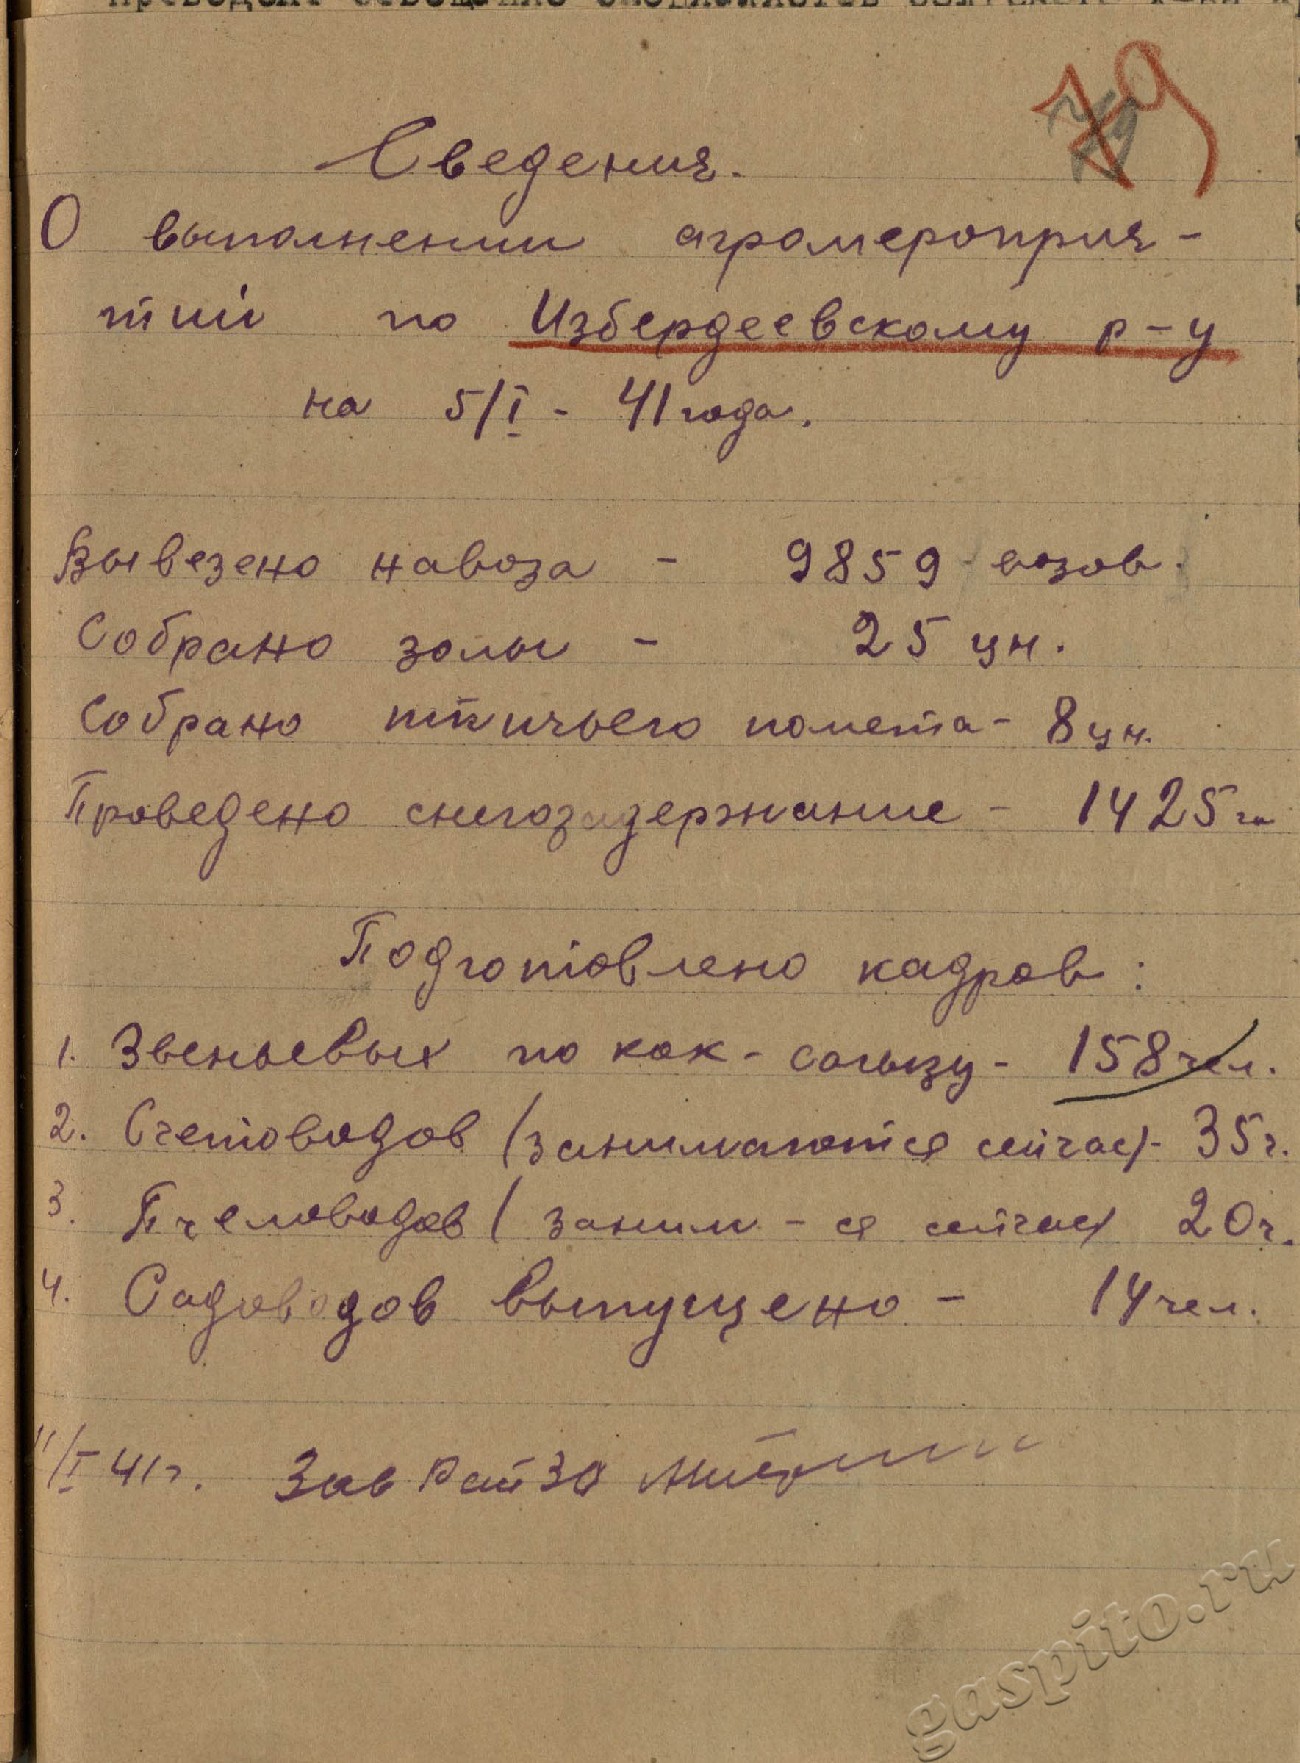 79
Сведения.
О выполнении агромероприя-
тий по Избердеевскому р-у
на 5/I - 41 года.
Вывезено навоза - 9859 возов.
Собрано золы - 25 цн.
Собрано птичьего помета - 8 цн.
Проведено снегозадержание - 1425 га
Подготовлено кадров:
1. Звеньевых по кок-сагызу - 158 чел.
2. Счетоводов (занимаются сейчас) - 35 ч.
3. Пчеловодов (заним-ся сейчас) 20 ч.
4. Садоводов выпущено - 14 чел.
11/I 41 г. Зав РайЗО
gaspito.ru